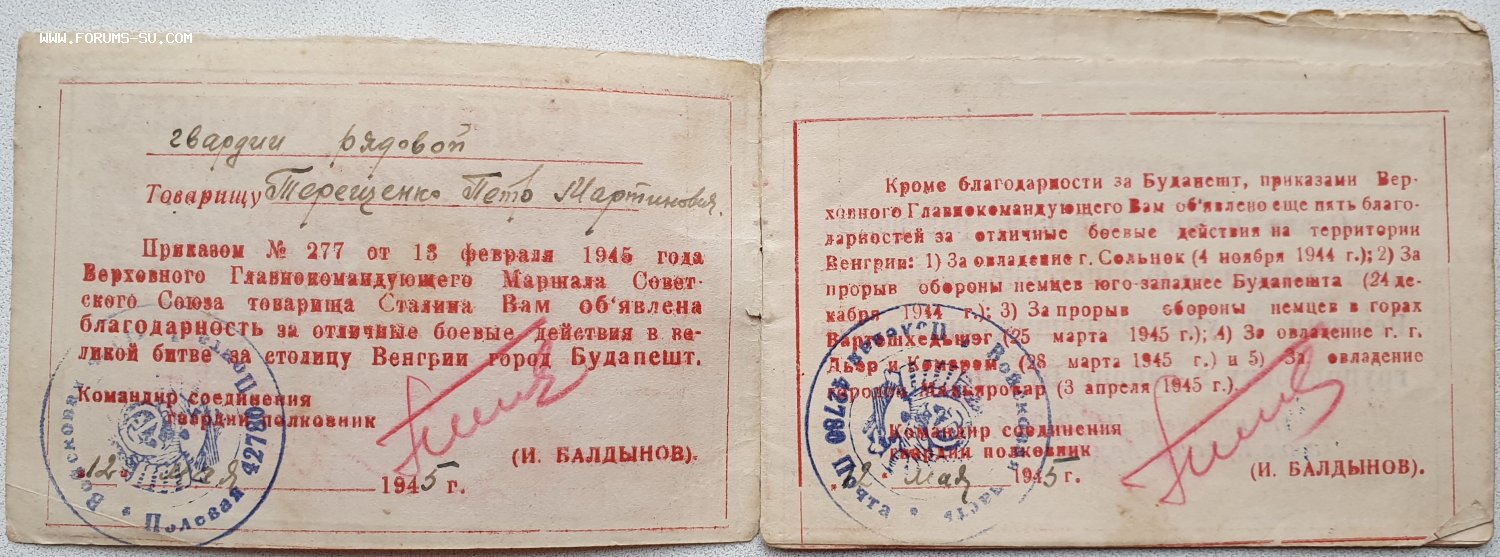 WWW.FORUMS-SU.COM
гвардии рядовой
Товарищу Терещенко Петр Мартинович.
Приказом № 277 от 13 февраля 1945 года
Верховного Главнокомандующего Маршала Совет-
ского Союза товарища Сталина Вам об'явлена
благодарность за отличные боевые действия в ве-
ликой битве за столицу Венгрии город Будапешт.
Командир соединения
гвардии полковник
(И. БАЛДЫНОВ).
"12" мая 1945 г.
Войсковая часть • Полевая Почта 42780 •
Кроме благодарности за Будапешт, приказами Вер-
ховного Главнокомандующего Вам об'явлено еще пять благо-
дарностей за отличные боевые действия на территории
Венгрии: 1) За овладение г. Сольнок (4 ноября 1944 г.); 2) За
прорыв обороны немцев юго-западнее Будапешта (24 де-
кабря 1944 г.); 3) За прорыв обороны немцев в горах
Вартешхедьшэг (25 марта 1945 г.); 4) За овладение г. г.
Дьер и Комаром (28 марта 1945 г.) и 5) За овладение
городом Мадьяровар (3 апреля 1945 г.).
Командир соединения
гвардии полковник
(И. БАЛДЫНОВ).
12 мая 1945 г.
Войсковая часть • Полевая Почта 42780 •